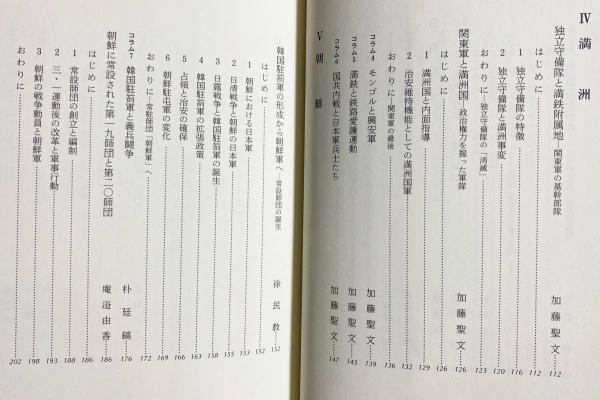 Ⅳ 満洲
独立守備隊と満鉄附属地 関東軍の基幹部隊 加藤聖文 112
はじめに 112
1 独立守備隊の特徴 116
2 独立守備隊と満洲事変 120
おわりに 独立守備隊の「消滅」 123
関東軍と満洲国 政治権力を握った軍隊 加藤聖文 126
はじめに 126
1 満洲国と内面指導 129
2 治安維持機能としての満洲国軍 132
おわりに 関東軍の最後 136
コラム4 モンゴルと興安軍 加藤聖文 139
コラム5 満鉄と鉄路愛護運動 加藤聖文 143
コラム6 国共内戦と日本軍兵士たち 加藤聖文 147
Ⅴ 朝鮮
韓国駐箚軍の形成から朝鮮軍へ―常設師団の誕生 徐民教 152
はじめに 152
1 朝鮮における日本軍 153
2 日清戦争と朝鮮の日本軍 155
3 日露戦争と韓国駐箚軍の誕生 158
4 韓国駐箚軍の拡張政策 163
5 占領と治安の確保 166
6 朝鮮駐屯軍の変化 169
おわりに 常駐師団「朝鮮軍」へ 172
コラム7 韓国駐箚軍と義兵闘争 朴廷鎬 176
朝鮮に常設された第一九師団と第二〇師団 庵逧由香 186
はじめに 186
1 常設師団の創立と編制 188
2 三・一運動後の改革と軍事行動 193
3 朝鮮の戦争動員と朝鮮軍 198
おわりに 202